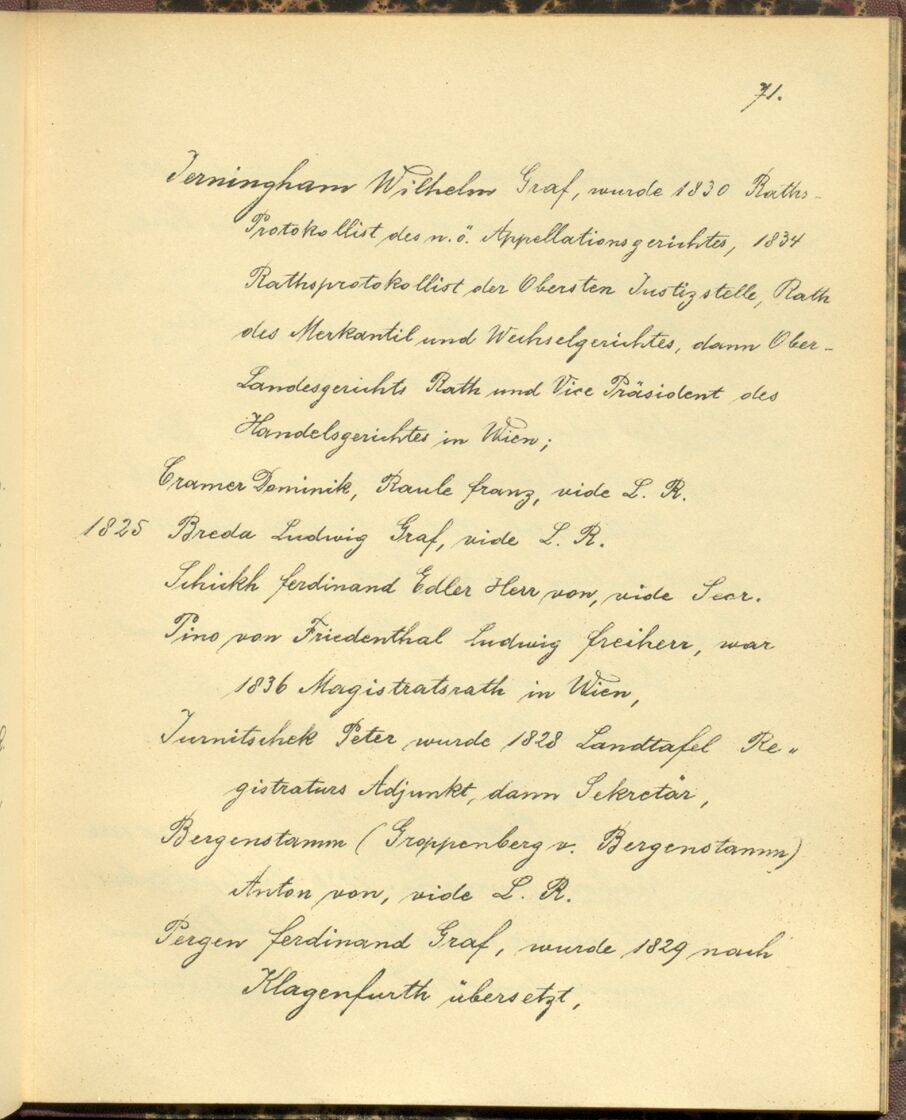 71.
Jerningham Wilhelm Graf, wurde 1830 Raths-
Protokollist des n. ö. Appellationsgerichtes, 1834
Rathsprotokollist der Obersten Justizstelle, Rath
des Merkantil und Wechselgerichtes, dann Ober-
Landesgerichts Rath und Vice Präsident des
Handelsgerichtes in Wien;
Cramer Dominik, Raule Franz, vide L. R.
1825 Breda Ludwig Graf, vide L. R.
Schickh Ferdinand Edler Herr von, vide Secr.
Pino von Friedenthal Ludwig Freiherr, war
1836 Magistratsrath in Wien,
Jurnitschek Peter wurde 1828 Landtafel Re„
gistraturs Adjunkt, dann Sekretär,
Bergenstamm (Groppenberg v. Bergenstamm)
Anton von, vide L. R.
Pergen Ferdinand Graf, wurde 1829 nach
Klagenfurth übersetzt,